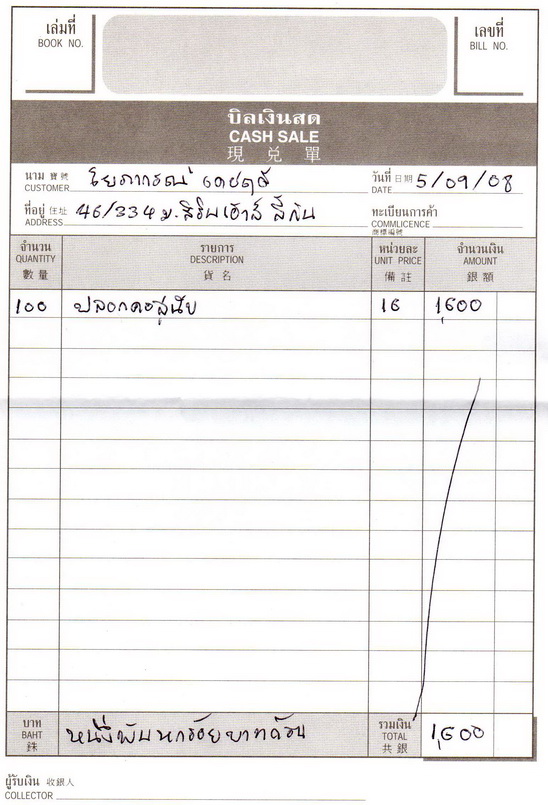 เล่มที่
BOOK NO.
เลขที่
BILL NO.
บิลเงินสด
CASH SALE
現 兑 單
นาม 寶號
CUSTOMER
วันที่ 日期 5/09/08
DATE
ที่อยู่ 住址 46/334 ม.สิรีนเฮ้าส์
ADDRESS
ทะเบียนการค้า
COMMLICENCE
商標編號
จำนวน รายการ หน่วยละ จำนวนเงิน
QUANTITY DESCRIPTION UNIT PRICE AMOUNT
數量 貨名 備註 銀額
100 ปลอกคอสุนัข 16 1,600
บาท หนึ่งพันหกร้อยบาทถ้วน รวมเงิน 1,600
BAHT TOTAL
銖 共銀
ผู้รับเงิน 收銀人
COLLECTOR